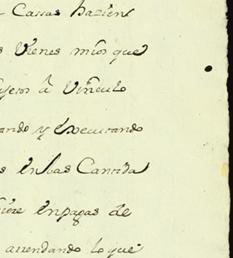 Cassas hazien
s vienes mios que
sujetos â Vinculo
ando y executando
s en las Cantida
en pagas de
arrendando lo que